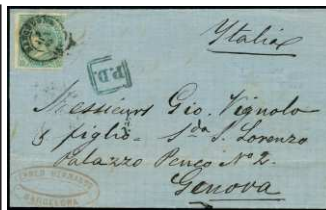 Italia
P.D.
Messieurs Gio. Vignolo
& figlio - Sda S. Lorenzo
Palazzo Penco Nº 2.
Genova
BARCELONA